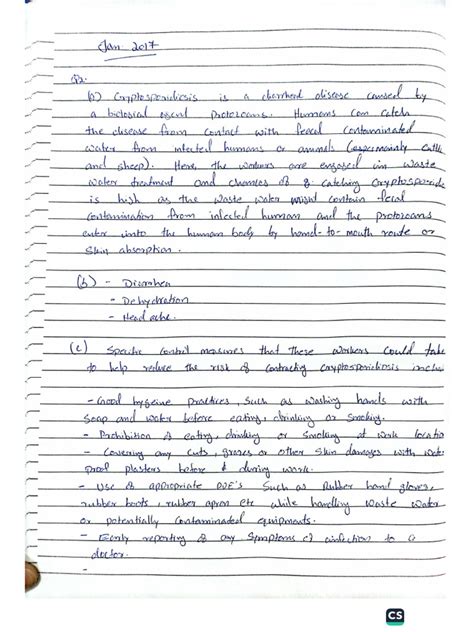 Jan 2017
Q2.
(a) Cryptosporidiosis is a diarrheal disease caused by
a biological agent protozoans. Humans can catch
the disease from contact with fecal contaminated
water from infected humans or animals (especially cattle
and sheep). Here, the workers are engaged in waste
water treatment and chances of catching Cryptosporidio
is high as the waste water might contain fecal
contamination from infected human and the protozoans
enter into the human body by hand-to-mouth route or
Skin absorption.
(b) - Diarrhea
- Dehydration
- Headache.
(c) Specific control measures that these workers could take
to help reduce the risk of contracting cryptosporidiosis inclu
- Good hygeine practices, such as washing hands with
Soap and water before eating, drinking or smoking.
- Prohibition of eating, drinking or smoking at work locatio
- Covering any cuts, grazes or other skin damages with wate
proof plasters before & during work.
- Use of appropriate PPE's such as Rubber hand gloves,
rubber boots, rubber apron etc while handling waste water
or potentially contaminated equipments.
- Early reporting of any symptoms of infection to a
doctor.
-
CS